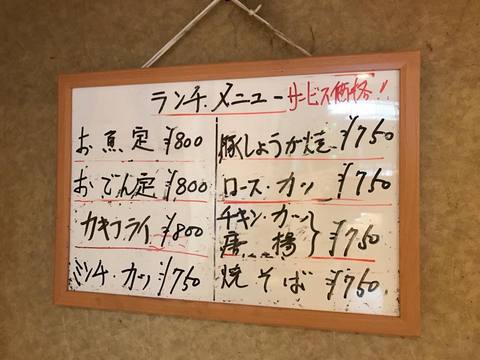 ランチ.メニュー サービス価格!!
お魚定 ¥800
おでん定 ¥800
カキフライ ¥800
ミンチ.カツ ¥750
豚しょうが焼 ¥750
ロース.カツ ¥750
チキン.カツ
唐揚 ¥750
焼そば ¥750